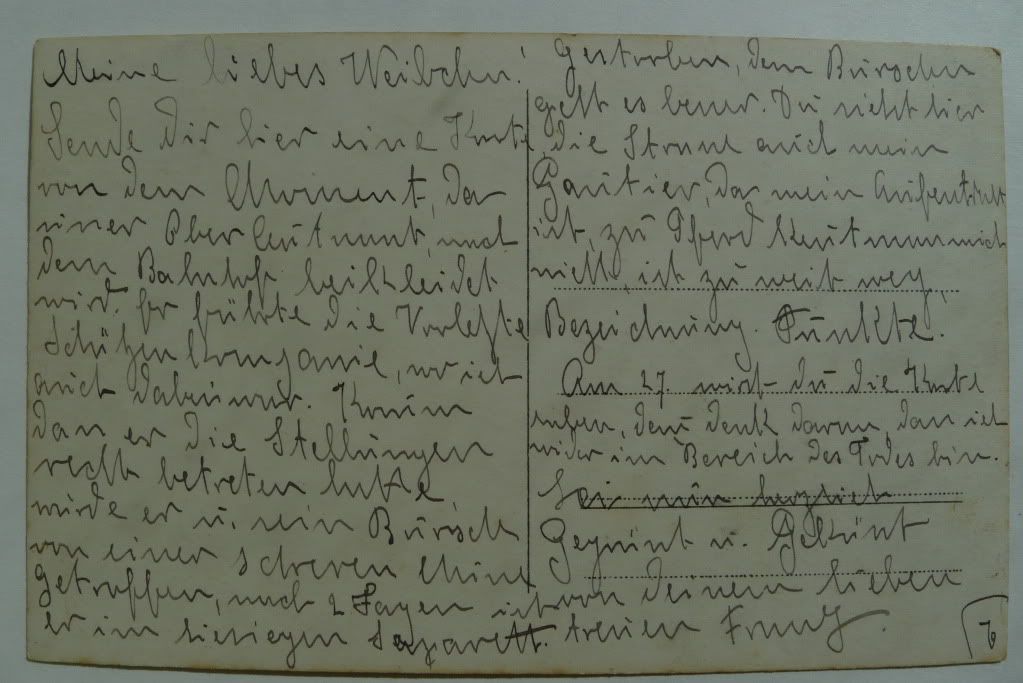 Meine liebes Weibchen!
Sende dir hier eine Karte
von dem Moment, da
einer Oberleutnant, nach
dem Bahnhof beikleidet
wird. Er führte die Vorletzte
Schützenkompanie, wo ich
auch dabei war. Kaum
dan er die Stellungen
recht betreten hatte
wurde er u. sein Bursch
von einer schweren Mine
getroffen, nach 2 Tagen ist
er im hiesigen Lazarett.
Gestorben, dem Burschen
geht es besser. Du sieht hier
die Strasse auch mein
Quartier, das mein Aufenthalt
ist, zu Pferd kent man mich
nicht, ist zu weit weg,
Bezeichnung. Punkte.
Am 27. wirst du die Karte
haben, den denk daran, dan ich
wider im Bereich des Todes bin.
Sei nun herzlich
Gegrüßt u. Geküßt
von deinem lieben
treuen Franz.